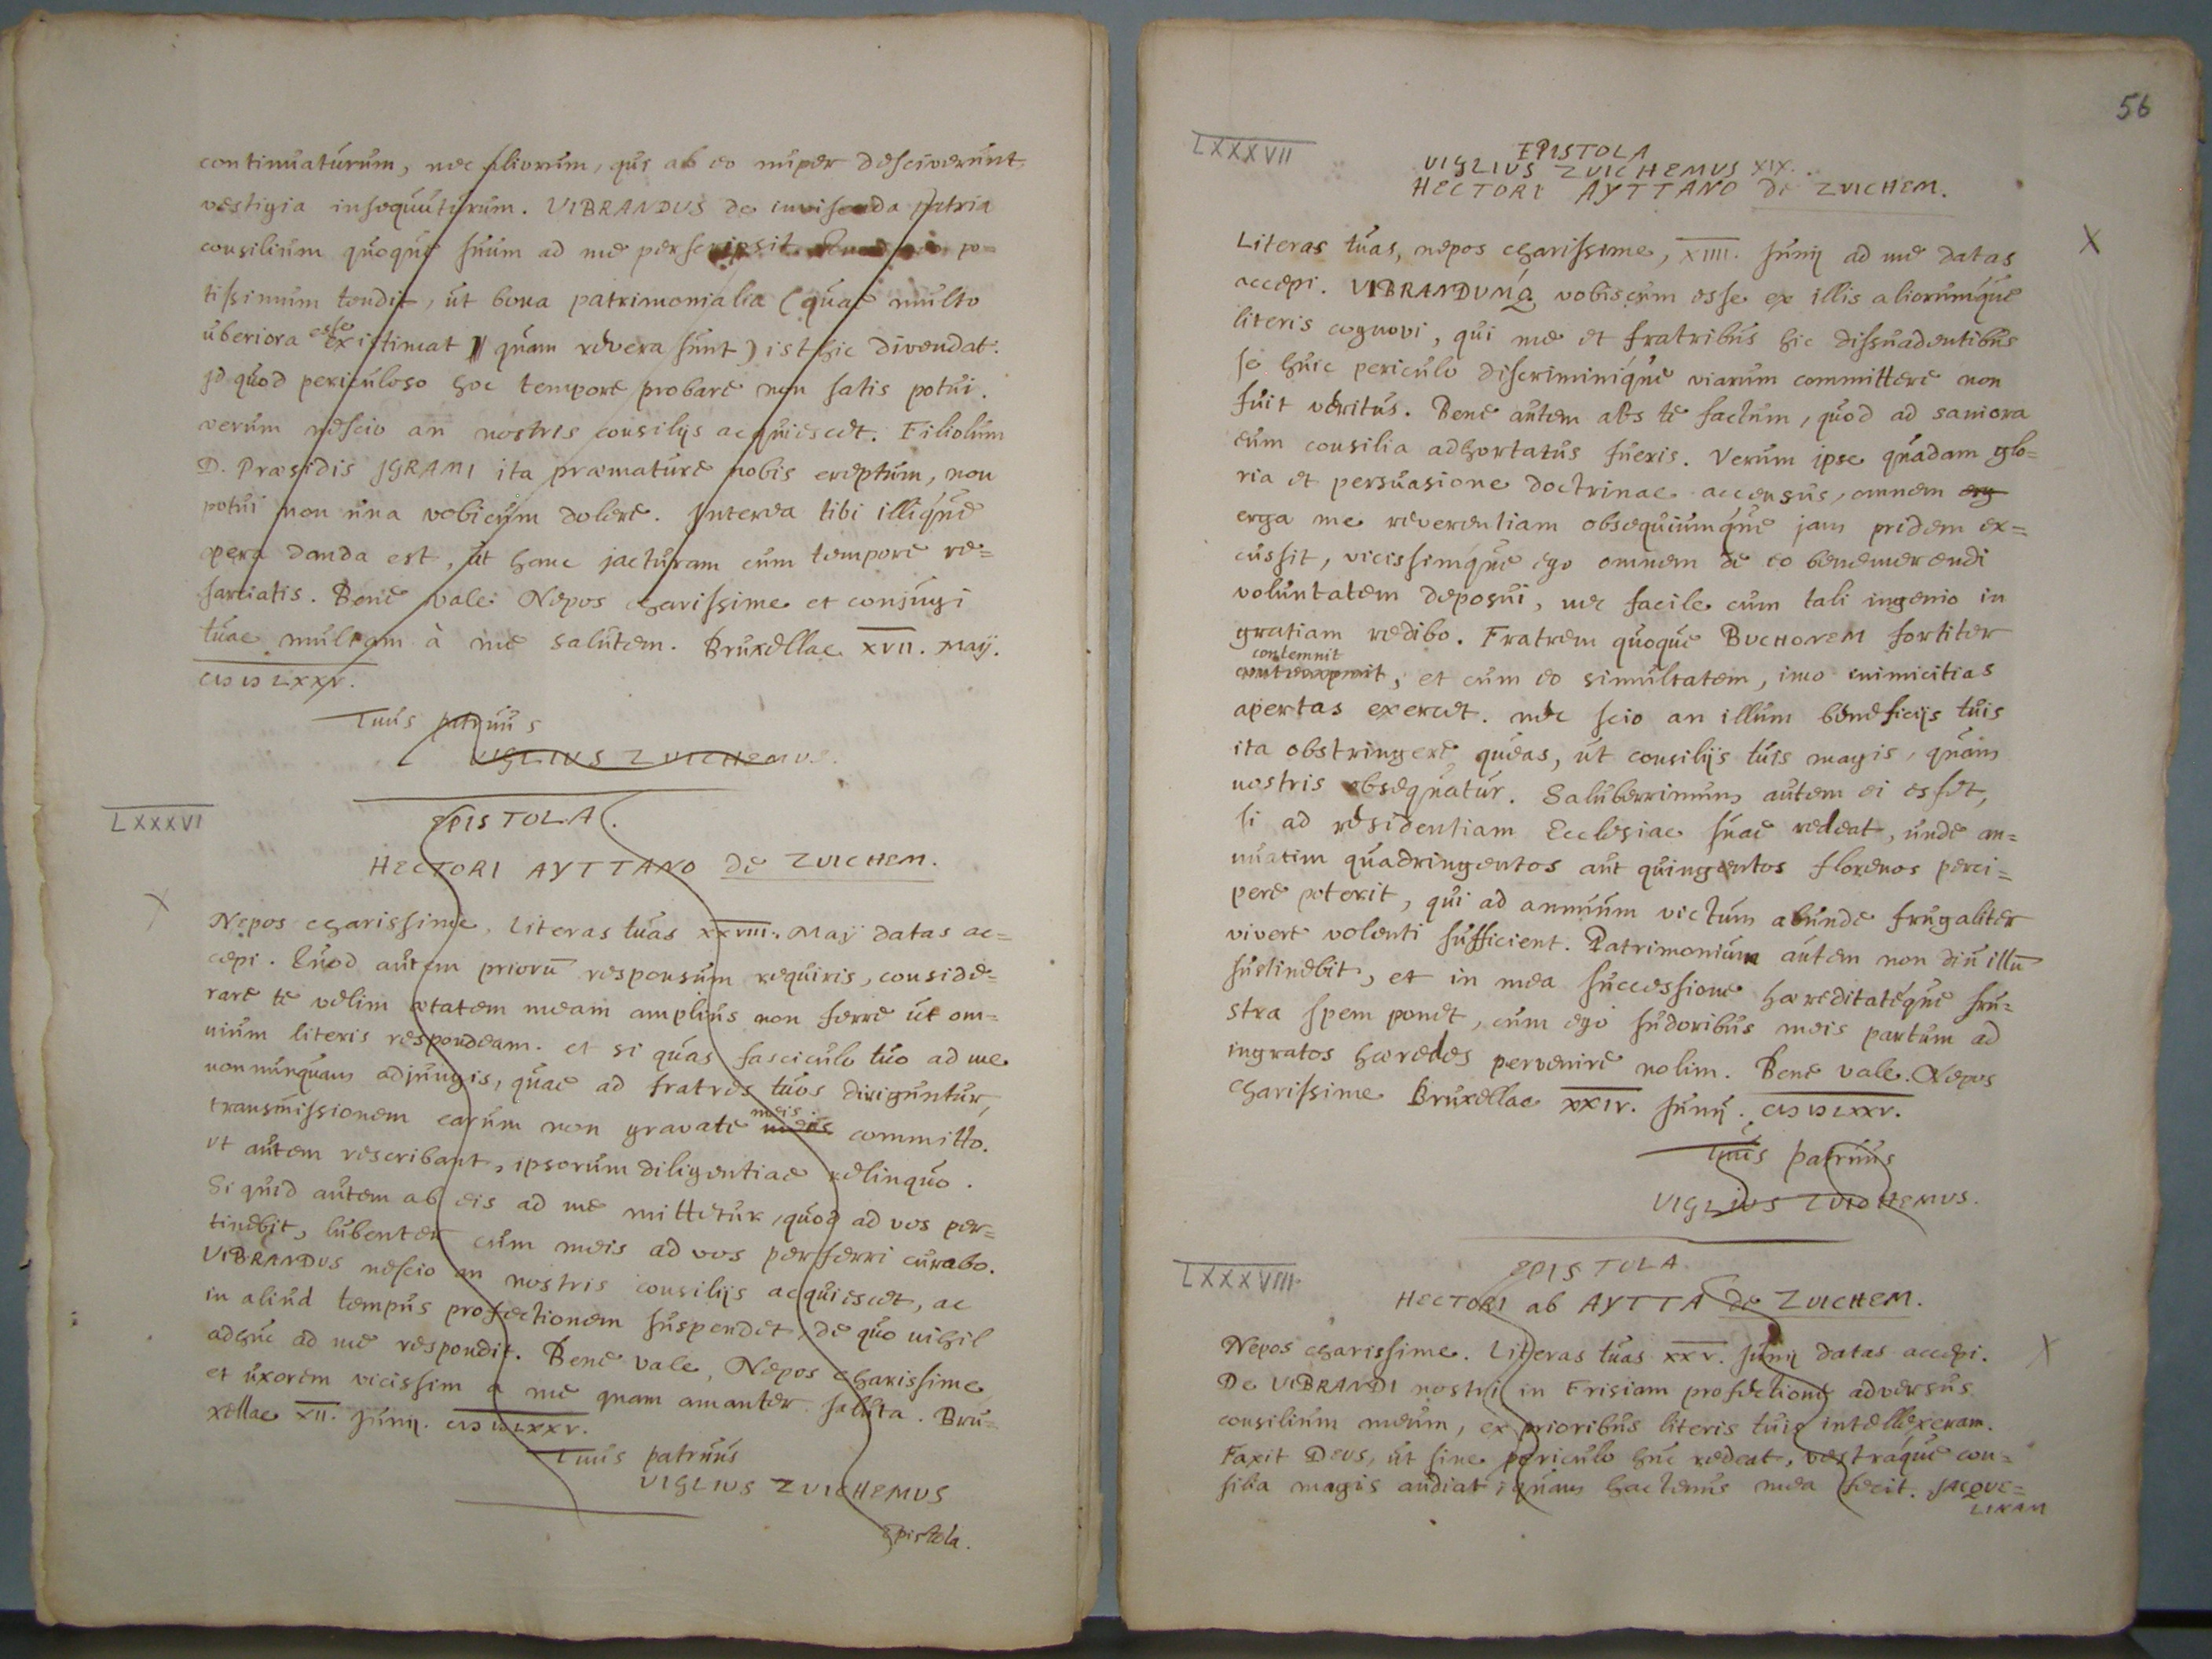 continuaturum, nec aliorum, qui ab eo nuper desciverunt
vestigia insequuturum. VIBRANDUS de invisenda patria
consilium quoque suum ad me perscripsit. po=
tissimum tendit, ut bona patrimonialia (quae multo
uberiora esse existimat quam revera sunt) isthic divendat.
Id quod periculoso hoc tempore probare non satis potui.
verum nescio an nostris consilijs acquiescet. Filiolum
D. Praesidis IGRAMI ita praemature nobis ereptum, non
potui non una vobiscum dolere. Interea tibi illique
opera danda est, ut hanc jacturam cum tempore re=
sartiatis. Bene vale Nepos charissime et conjugi
tuae multam à me salutem. Bruxellae XVII. Maij.
CIƆ IƆ LXXV.
Tuus patruus
VIGLIUS ZUICHEMUS.
LXXXVI
EPISTOLA.
HECTORI AYTTANO de ZUICHEM.
Nepos charissime, Literas tuas XXVIII. Maij datas ac=
cepi. Quod autem priorū responsum requiris, conside=
rare te velim aetatem meam amplius non ferre ut om=
nium literis respondeam. et si quas fasciculo tuo ad me
nonnunquam adjungis, quae ad fratres tuos diriguntur,
transmissionem earum non gravate meis committo.
ut autem rescribant, ipsorum diligentiae relinquo.
Si quid autem ab eis ad me mittetur, quod ad vos per=
tinebit, lubenter cum meis ad vos perferri curabo.
VIBRANDUS nescio an nostris consilijs acquiescet, ac
in aliud tempus profectionem suspendet, de quo nihil
adhuc ad me respondit. Bene vale, Nepos charissime
et uxorem vicissim a me quam amanter saluta. Bru=
xellae XII. Junij. CIƆ IƆ LXXV.
Tuus patruus
VIGLIUS ZUICHEMUS
Epistola.
56
LXXXVII
EPISTOLA
VIGLIUS ZUICHEMUS XIX.
HECTORI AYTTANO de ZUICHEM.
Literas tuas, nepos charissime, XIIII. Junij ad me datas
accepi. VIBRANDUMQ vobiscum esse ex illis aliorumque
literis cognovi, qui me et fratribus hic dissuadentibus
se huic periculo discriminique viarum committere non
fuit veritus. Bene autem abs te factum, quod ad saniora
eum consilia adhortatus fueris. Verum ipse quadam glo=
ria et persuasione doctrinae accensus, omnem erg
erga me reverentiam obsequiumque jam pridem ex=
cussit, vicissimque ego omnem de eo benemerendi
voluntatem deposui, nec facile cum tali ingenio in
gratiam redibo. Fratrem quoque BUCHONEM fortiter
contemnit
, et cum eo simultatem, imo inimicitias
apertas exercet. nec scio an illum beneficijs tuis
ita obstringere queas, ut consilijs tuis magis, quam
nostris obsequatur. Saluberrimum autem ei esset,
si ad residentiam Ecclesiae suae redeat, unde an=
nuatim quadringentos aut quingentos florenos perci=
pere poterit, qui ad annuum victum abunde frugaliter
vivere volenti sufficient. Patrimonium autem non diu illū
sustinebit, et in mea successione haereditateque fru=
stra spem ponet, cum ego sudoribus meis partum ad
ingratos haeredes pervenire nolim. Bene vale. Nepos
charissime Bruxellae XXIV. Junij. CIƆ IƆ LXXV.
Tuus patruus
VIGLIUS ZUICHEMUS.
LXXXVIII.
EPISTOLA.
HECTORI ab AYTTA de ZUICHEM.
Nepos charissime. Literas tuas XXV. Junij datas accepi.
De VIBRANDI nostri in Frisiam profectione adversus
consilium meum, ex prioribus literis tuis intellexeram.
Faxit Deus, ut sine periculo huc redeat, vestraque con=
silia magis audiat, quam hactenus mea fecit. JACQUE=
LINAM